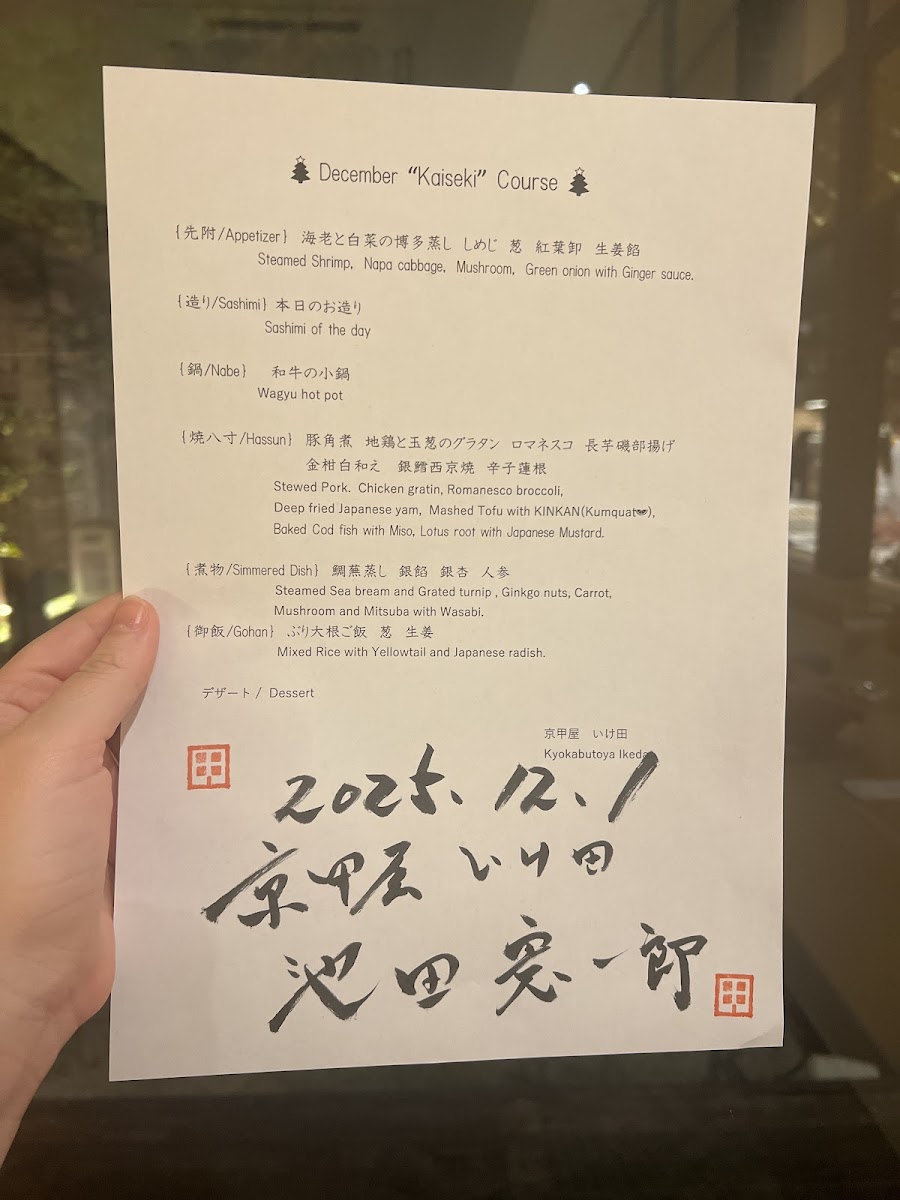 December “Kaiseki” Course
{先附/Appetizer} 海老と白菜の博多蒸し しめじ 葱 紅葉卸 生姜餡
Steamed Shrimp, Napa cabbage, Mushroom, Green onion with Ginger sauce.
{造り/Sashimi} 本日のお造り
Sashimi of the day
{鍋/Nabe} 和牛の小鍋
Wagyu hot pot
{焼八寸/Hassun} 豚角煮 地鶏と玉葱のグラタン ロマネスコ 長芋磯部揚げ
金柑白和え 銀鱈西京焼 辛子蓮根
Stewed Pork. Chicken gratin, Romanesco broccoli,
Deep fried Japanese yam, Mashed Tofu with KINKAN(Kumquat),
Baked Cod fish with Miso, Lotus root with Japanese Mustard.
{煮物/Simmered Dish} 鯛蕪蒸し 銀餡 銀杏 人参
Steamed Sea bream and Grated turnip , Ginkgo nuts, Carrot,
Mushroom and Mitsuba with Wasabi.
{御飯/Gohan} ぶり大根ご飯 葱 生姜
Mixed Rice with Yellowtail and Japanese radish.
デザート / Dessert
京甲屋 いけ田
Kyokabutoya Ikeda
2025.12.1
京甲屋 いけ田
池田 一郎